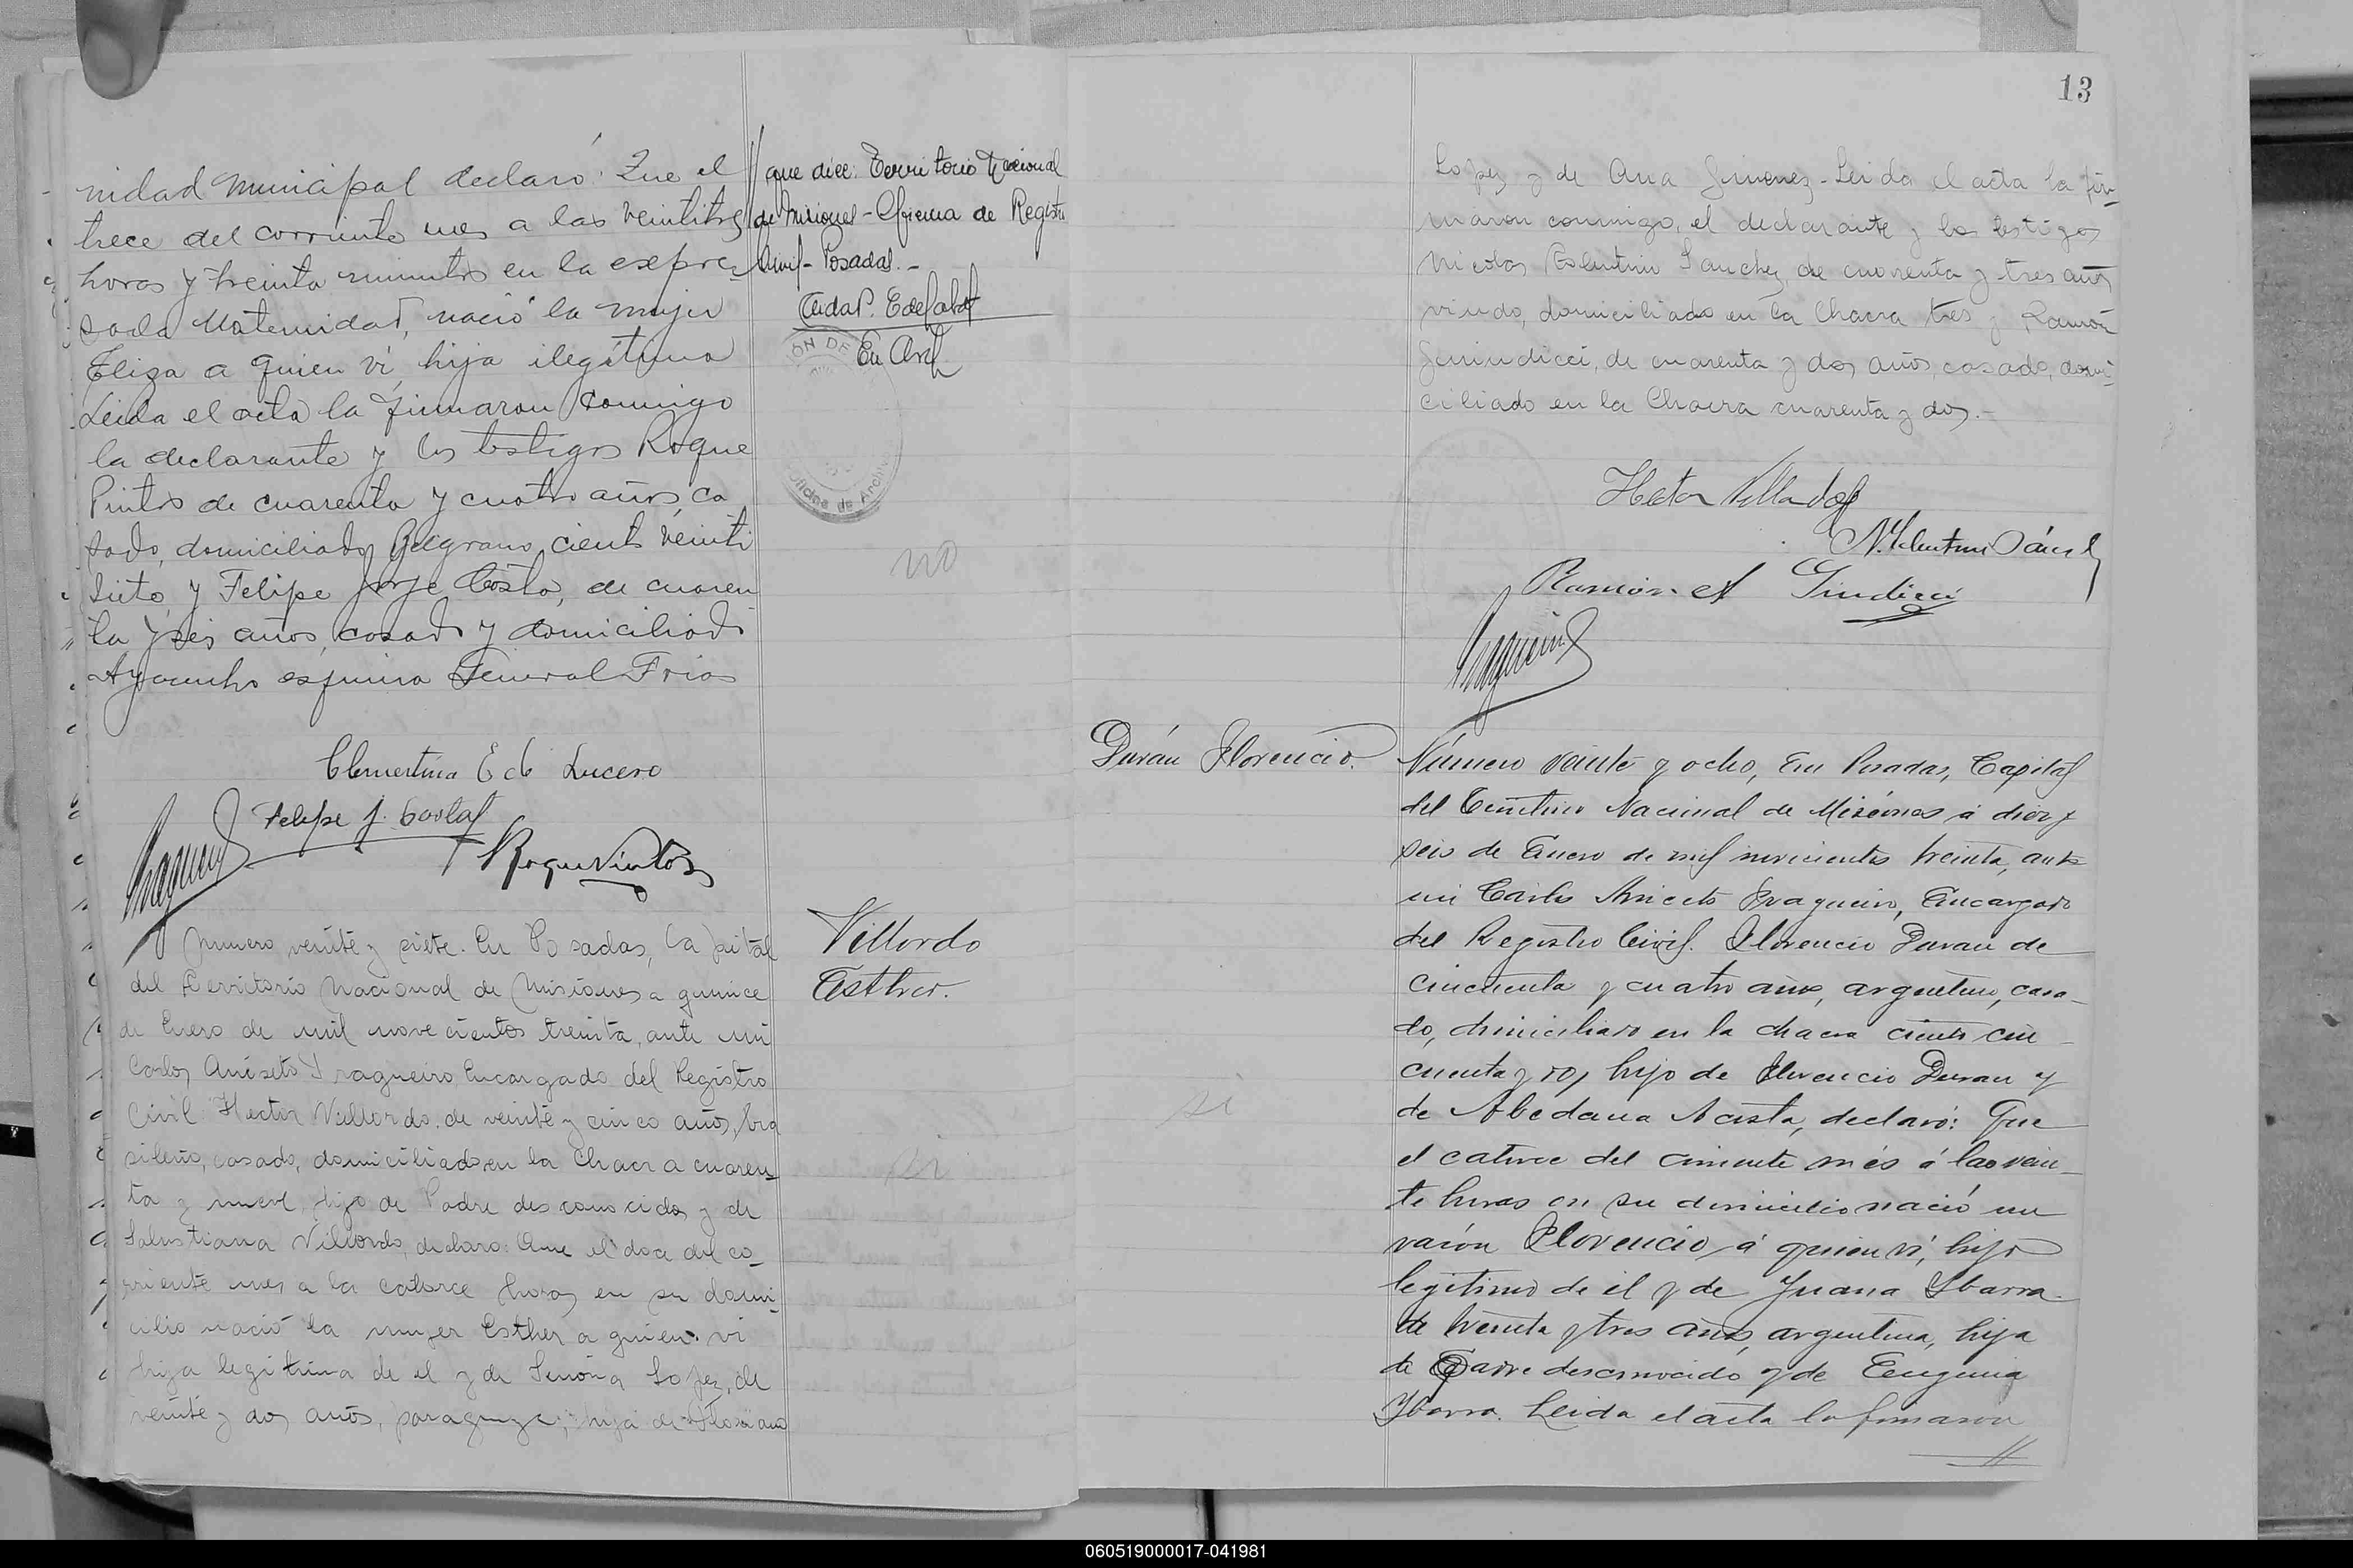 nidad Municipal declaró: Que el
trece del corriente mes a las veintitres
horas y treinta minutos en la expre-
sada Maternidad, nació la mujer
Eliza a quien ví, hija ilegítima
Leida el acta la firmaron conmigo
la declarante y los testigos Roque
Pintos de cuarenta y cuatro años, ca
sado, domiciliado Belgrano ciento veinti
siete, y Felipe Jorje Costa, de cuaren
ta y seis años, casado y domiciliado
Ayacucho esquina General Frias
Clementina E de Lucero
Felipe J. Costa
Roque Pintos
que dice: Territorio Nacional
de Misiones - Oficina de Registro
Civil - Posadas. -
Oficina de Archivo
no
Número veinte y siete. En Posadas, Capital
del Territorio Nacional de Misiones a quince
de Enero de mil novecientos treinta, ante mi
Carlos Aniseto Fragueiro Encargado del Registro
Civil Hector Villordo, de veinte y cinco años, bra
sileño, casado, domiciliado en la Chacra cuaren-
ta y nueve, hijo de Padre desconocido y de
Salustiana Villordo, declaro: Que el doce del co-
rriente mes a las catorce horas en su domi-
cilio nació la mujer Esther a quien vi
hija legitima de el y de Lopez, de
veinte y dos años, paraguaya, hija de
Villordo
Esther.
si
13
Lopez y de Ana Gimenez - Leida el acta la fir-
maron conmigo, el declarante y los testigos
Nicolas Sanchez, de cuarenta y tres años
viudo, domiciliado en la Chacra tres y Ramón
de cuarenta y dos años, casado, domi-
ciliado en la Chacra cuarenta y dos. -
Hector Villordo
Ramón A Giudici
Durán Florencio.
si
Número veinte y ocho, En Posadas, Capital
del Territorio Nacional de Misiones á diez y
seis de Enero de mil novecientos treinta, ante
mi Carlos Aniceto Fragueiro, Encargado
del Registro Civil. Florencio Duran de
cincuenta y cuatro años, argentino, casa-
do, domiciliado en la chacra ciento cin-
cuenta y dos, hijo de Florencio Duran y
de Abedana Acosta, declaró: Que
el catorce del corriente més á las vein-
te horas en su domicilio nació un
varón Florencio á quien ví, hijo
legítimo de el y de Juana Ybarra
de treinta y tres años, argentina, hija
de Padre desconocido y de Eugenia
Ybarra. Leida el acta la firmaron
//
060519000017-041981